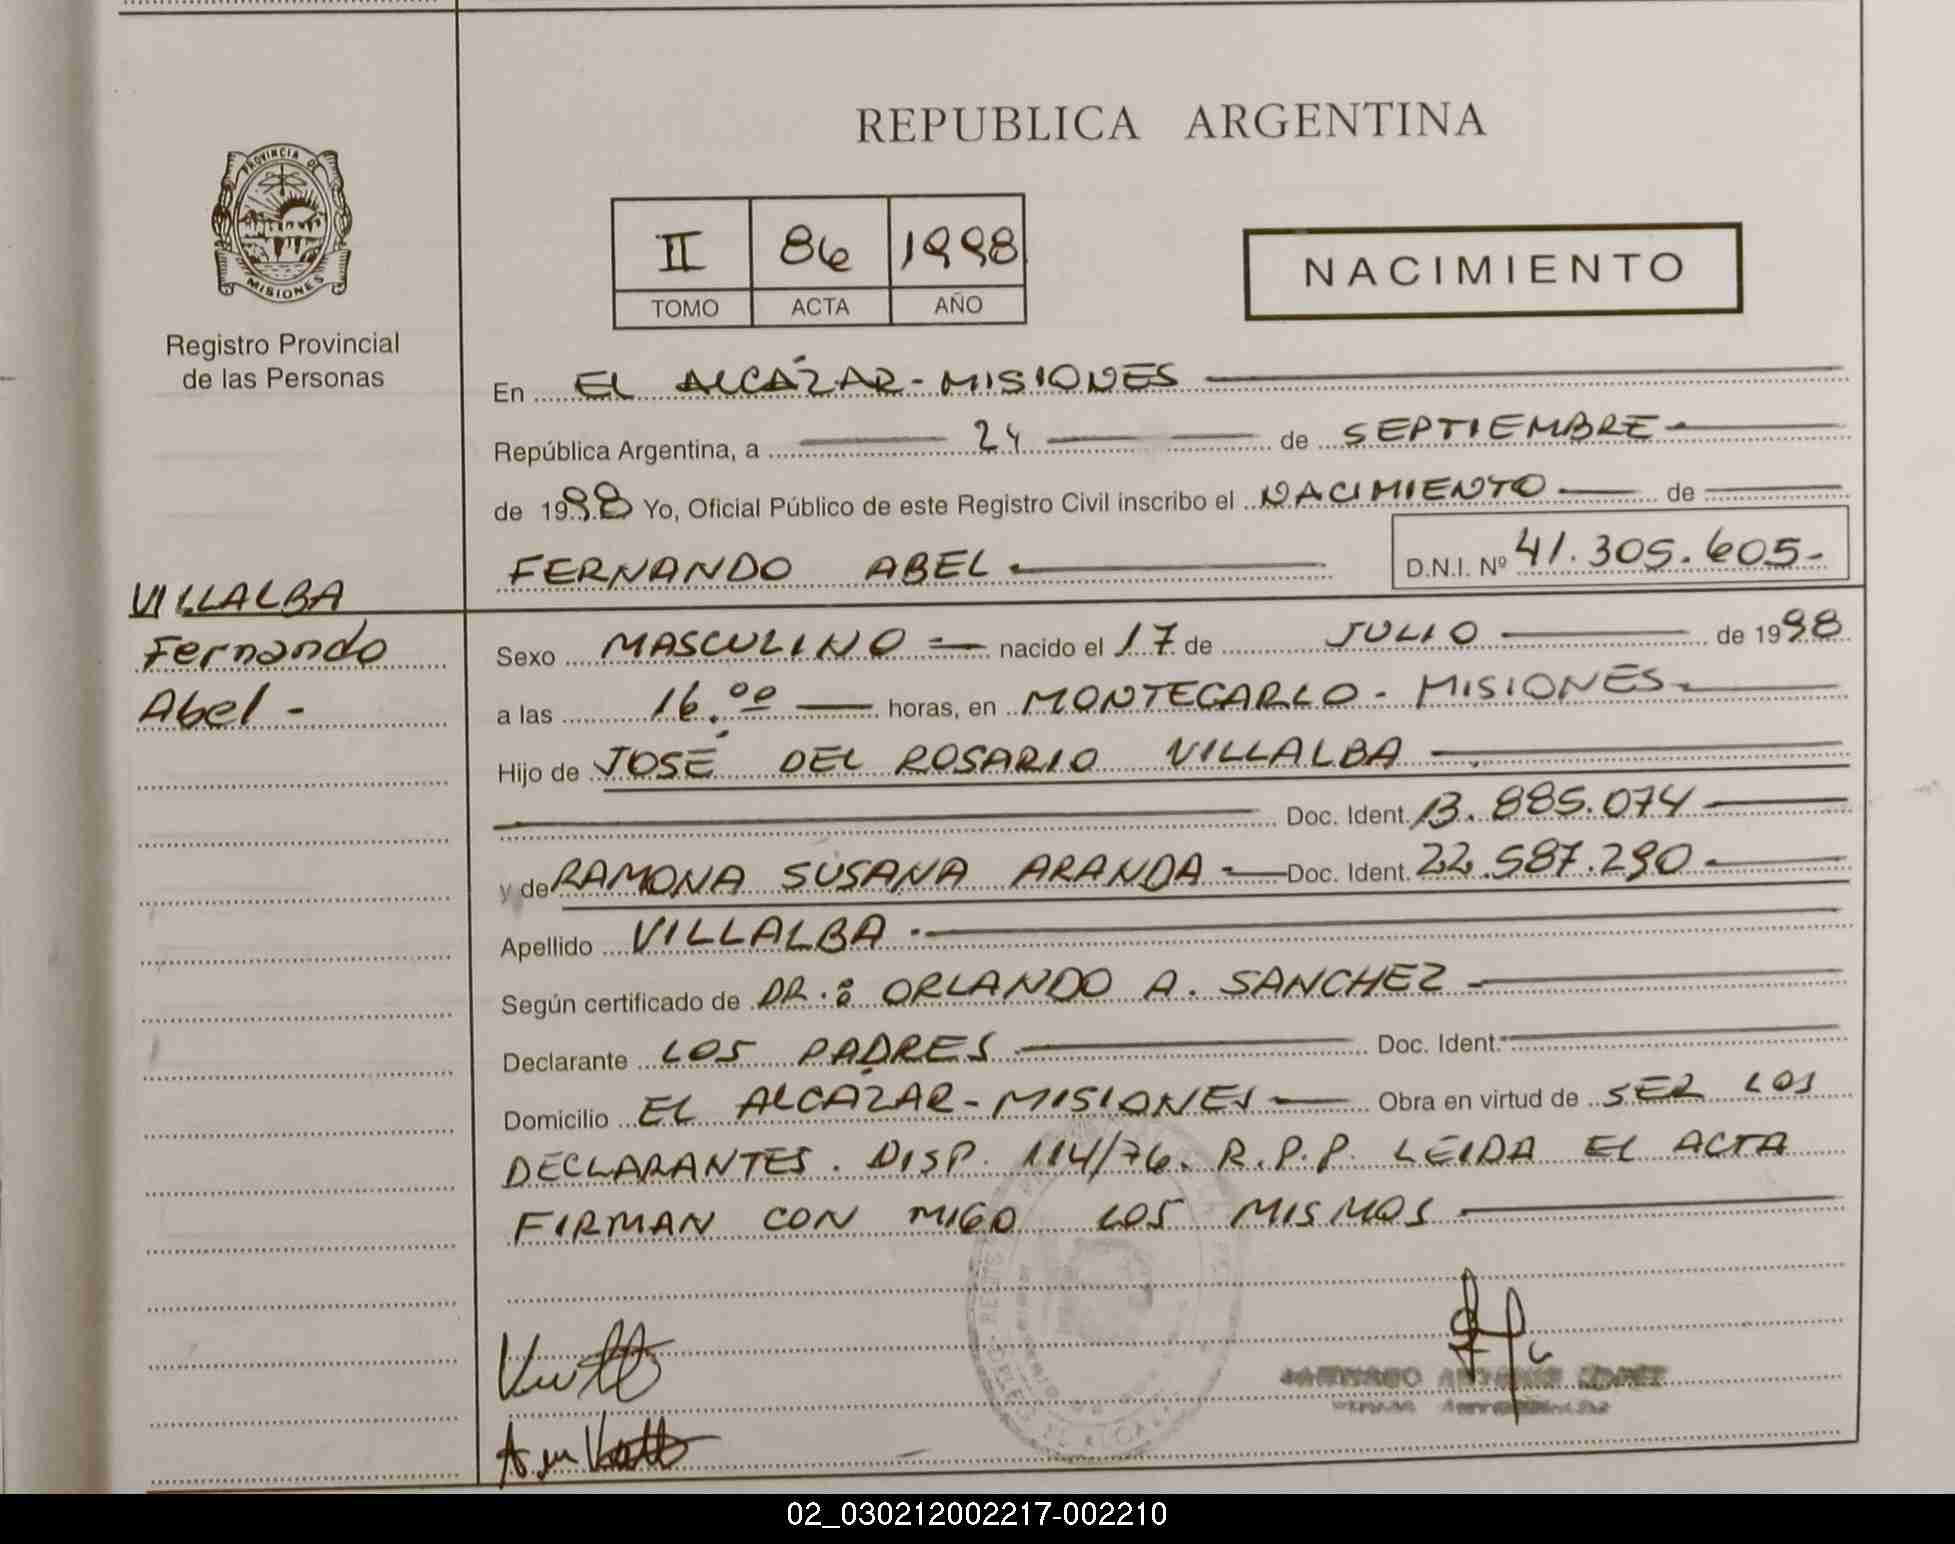 REPUBLICA ARGENTINA
PROVINCIA DE
MISIONES
Registro Provincial
de las Personas
II 86 1998
TOMO ACTA AÑO
NACIMIENTO
En EL ALCÁZAR-MISIONES
República Argentina, a 24 de SEPTIEMBRE
de 1998 Yo, Oficial Público de este Registro Civil inscribo el NACIMIENTO de
FERNANDO ABEL D.N.I. Nº 41.305.605-
VILLALBA
Fernando
Abel -
Sexo MASCULINO nacido el 17 de JULIO de 1998
a las 16.00 horas, en MONTECARLO - MISIONES
Hijo de JOSÉ DEL ROSARIO VILLALBA
Doc. Ident. 13.885.074
y de RAMONA SUSANA ARANDA Doc. Ident. 22.587.290
Apellido VILLALBA
Según certificado de DR.: ORLANDO A. SANCHEZ
Declarante LOS PADRES Doc. Ident.
Domicilio EL ALCÁZAR-MISIONES Obra en virtud de SER LOS
DECLARANTES. DISP. 114/76. R.P.P. LEIDA EL ACTA
FIRMAN CON MIGO LOS MISMOS
02_030212002217-002210